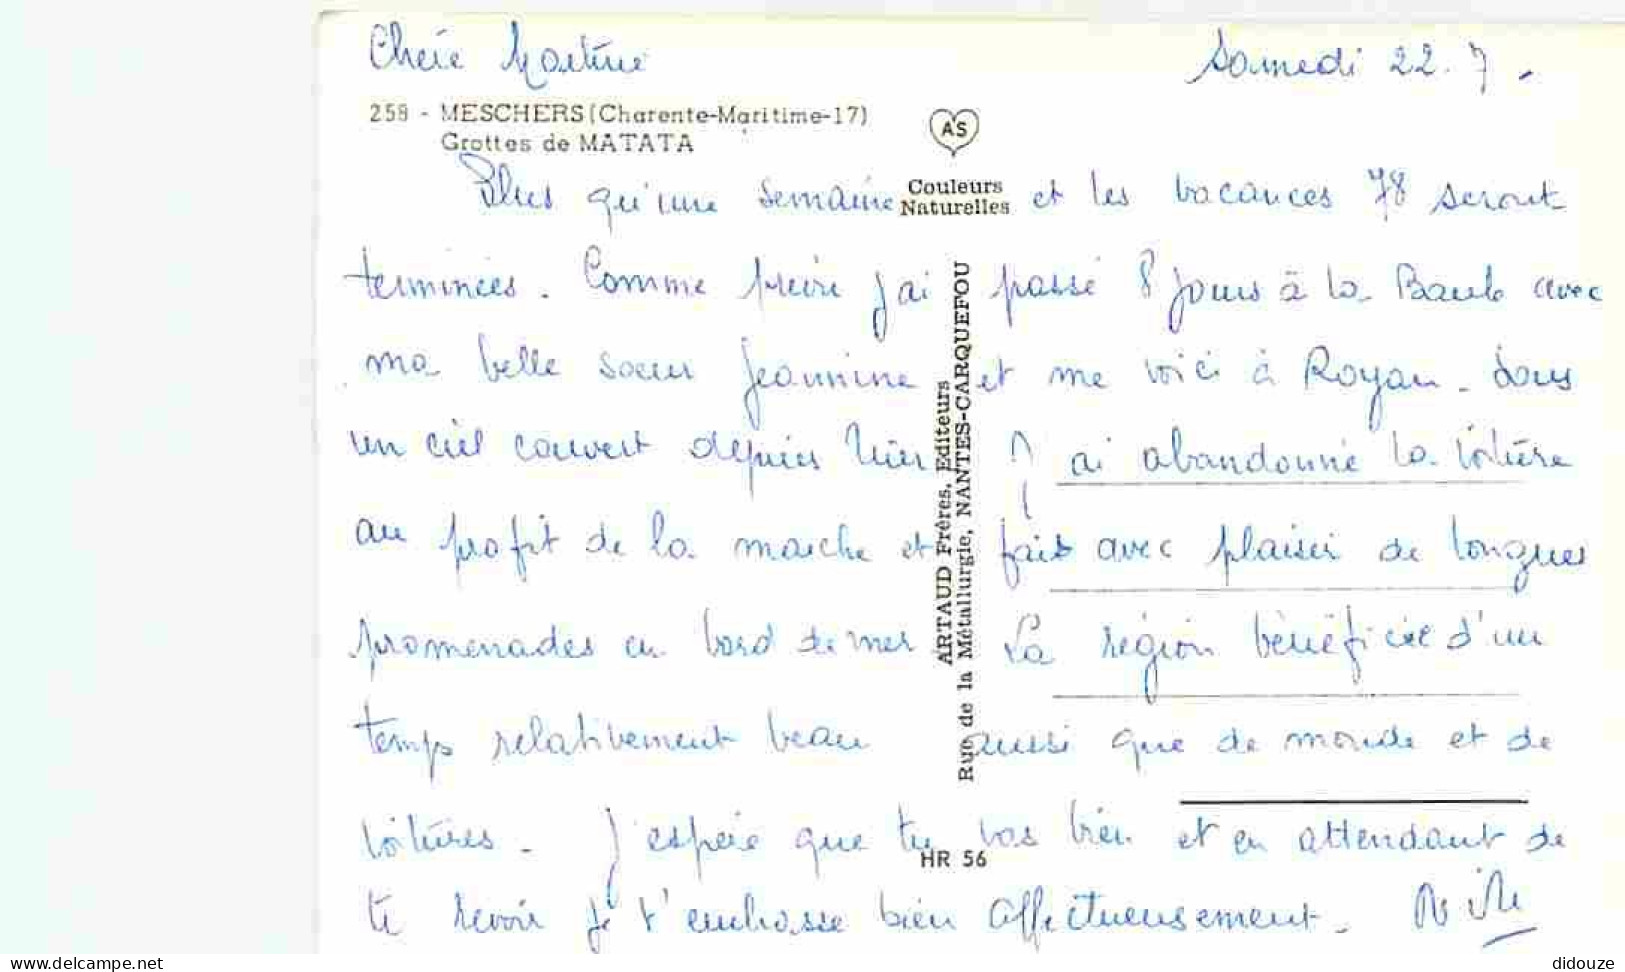 Chère Martine Samedi 22.7.
258 - MESCHERS (Charente-Maritime-17)
Grottes de MATATA
AS
Couleurs
Naturelles
Plus qu'une semaine et les vacances 78 seront
terminées. Comme prévu j'ai passé 8 jours à la Baule avec
ma belle soeur Jeannine et me voici à Royan. Sous
un ciel couvert depuis hier j'ai abandonné la voiture
au profit de la marche et fais avec plaisir de longues
promenades en bord de mer La région bénéficie d'un
temps relativement beau aussi que de monde et de
voitures - J'espère que tu vas bien et en attendant de
te revoir je t'embrasse bien affectueusement.
ARTAUD Frères, Editeurs
Rue de la Métallurgie, NANTES-CARQUEFOU
HR 56
www.delcampe.net
didouze